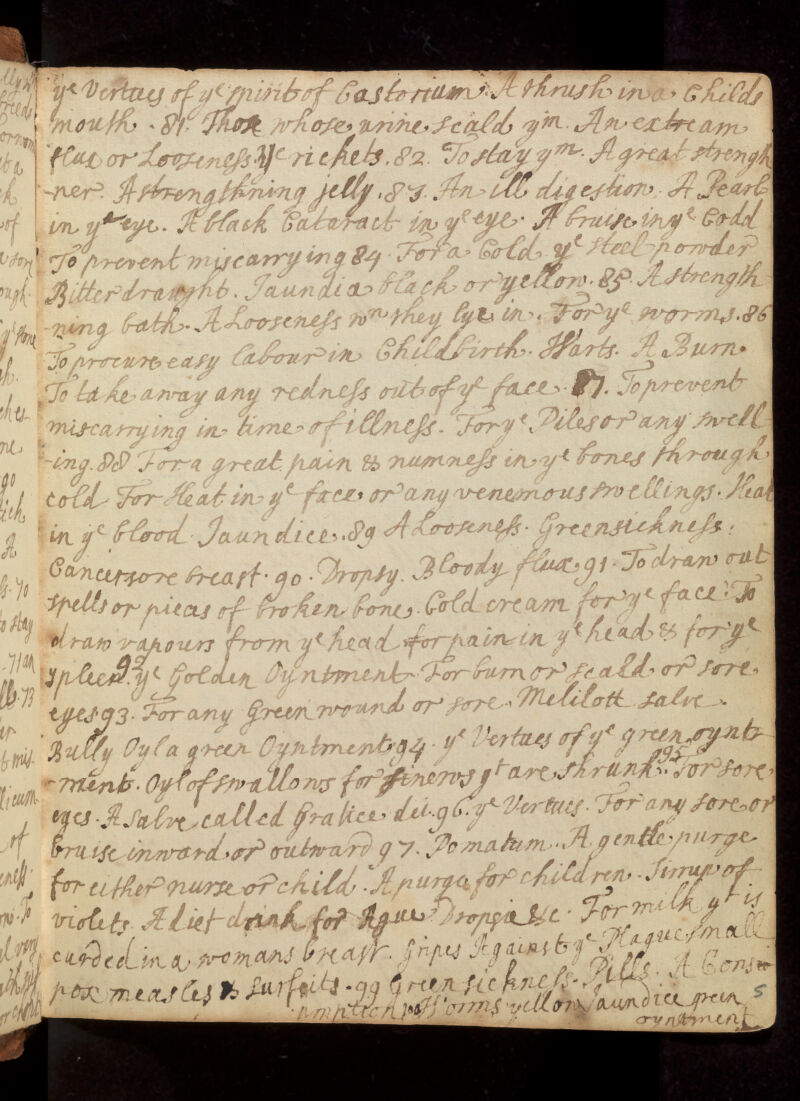 ye Vertues of ye spirit of Castorium. A thrush in a Childs
mouth . 81. Those whose urine scald ym. An extream
flux or Looseness. Ye rickets. 82. To stay ym. A great strength
-ner. A strengthning jelly. 83. An ill digestion. A Pearl
in ye eye. A black Cataract in ye eye. A bruise in ye Codd
To prevent miscarrying 84. For a Cold ye steel powder
Bitter draught. Jaundia black or yellow. 85. A strength
ning bath. A Looseness wn they lye in. For ye worms. 86
To procure easy labour in Childbirth. Warts. A Burn.
To take away any redness out of ye face. 87. To prevent
miscarrying in time of illness. For ye Piles or any swell
-ing. 88 For a great pain & numness in ye bones through
cold For Heat in ye face or any venemous swellings. Heat
in ye blood. Jaundice. 89 A Looseness. Greensickness.
Cancer sore breast. 90. Dropsy. Bloody flux 91. To draw out
spells or pieces of broken bone. Cold cream for ye face. To
draw vapours from ye head for pain in ye head & for ye
spleen 92 ye Golden Oyntment. For burn or scald or sore
eyes 93. For any Green wound or sore. Melilott salve.
Bully Oyl a green Oyntment 94. ye Vertues of ye green oynt
-ment. Oyl of swallows for sinews yt are shrunk. 95 For sore
eyes. A Salve called Gratiee dei. 96. ye Vertues. For any sore or
bruise inward or outward 97. Pomatum. A gentle purge
for either nurse or child. A purge for children. Sirrup of
violets. A diet drink for Ague Dropsie &c. For milk yt is
curded in a womans breast. Gripes Against ye Plague small
pox measles & surfeits. 99 Greensickness. Pills. A Cons
umption Worms yellow Jaundice green 5
oyntment